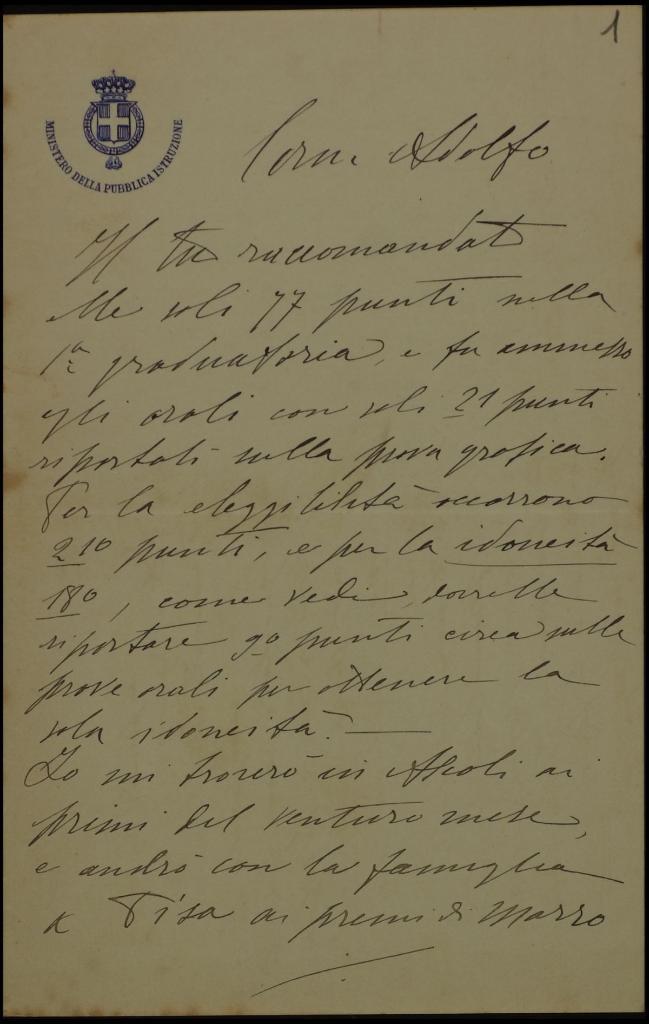 1
MINISTERO DELLA PUBBLICA ISTRUZIONE
Adolfo
Il tuo raccomandato
ebbe soli 77 punti nella
1a graduatoria, e fu ammesso
agli orali con soli 21 punti
riportati nella prova grafica.
Per la eleggibilità occorrono
210 punti, e per la idoneità
180, come vedi, dovrebbe
riportare 90 punti circa nelle
prove orali per ottenere la
sola idoneità. —
Io mi troverò in Ascoli ai
primi del venturo mese,
e andrò con la famiglia
a Pisa ai primi di Marzo